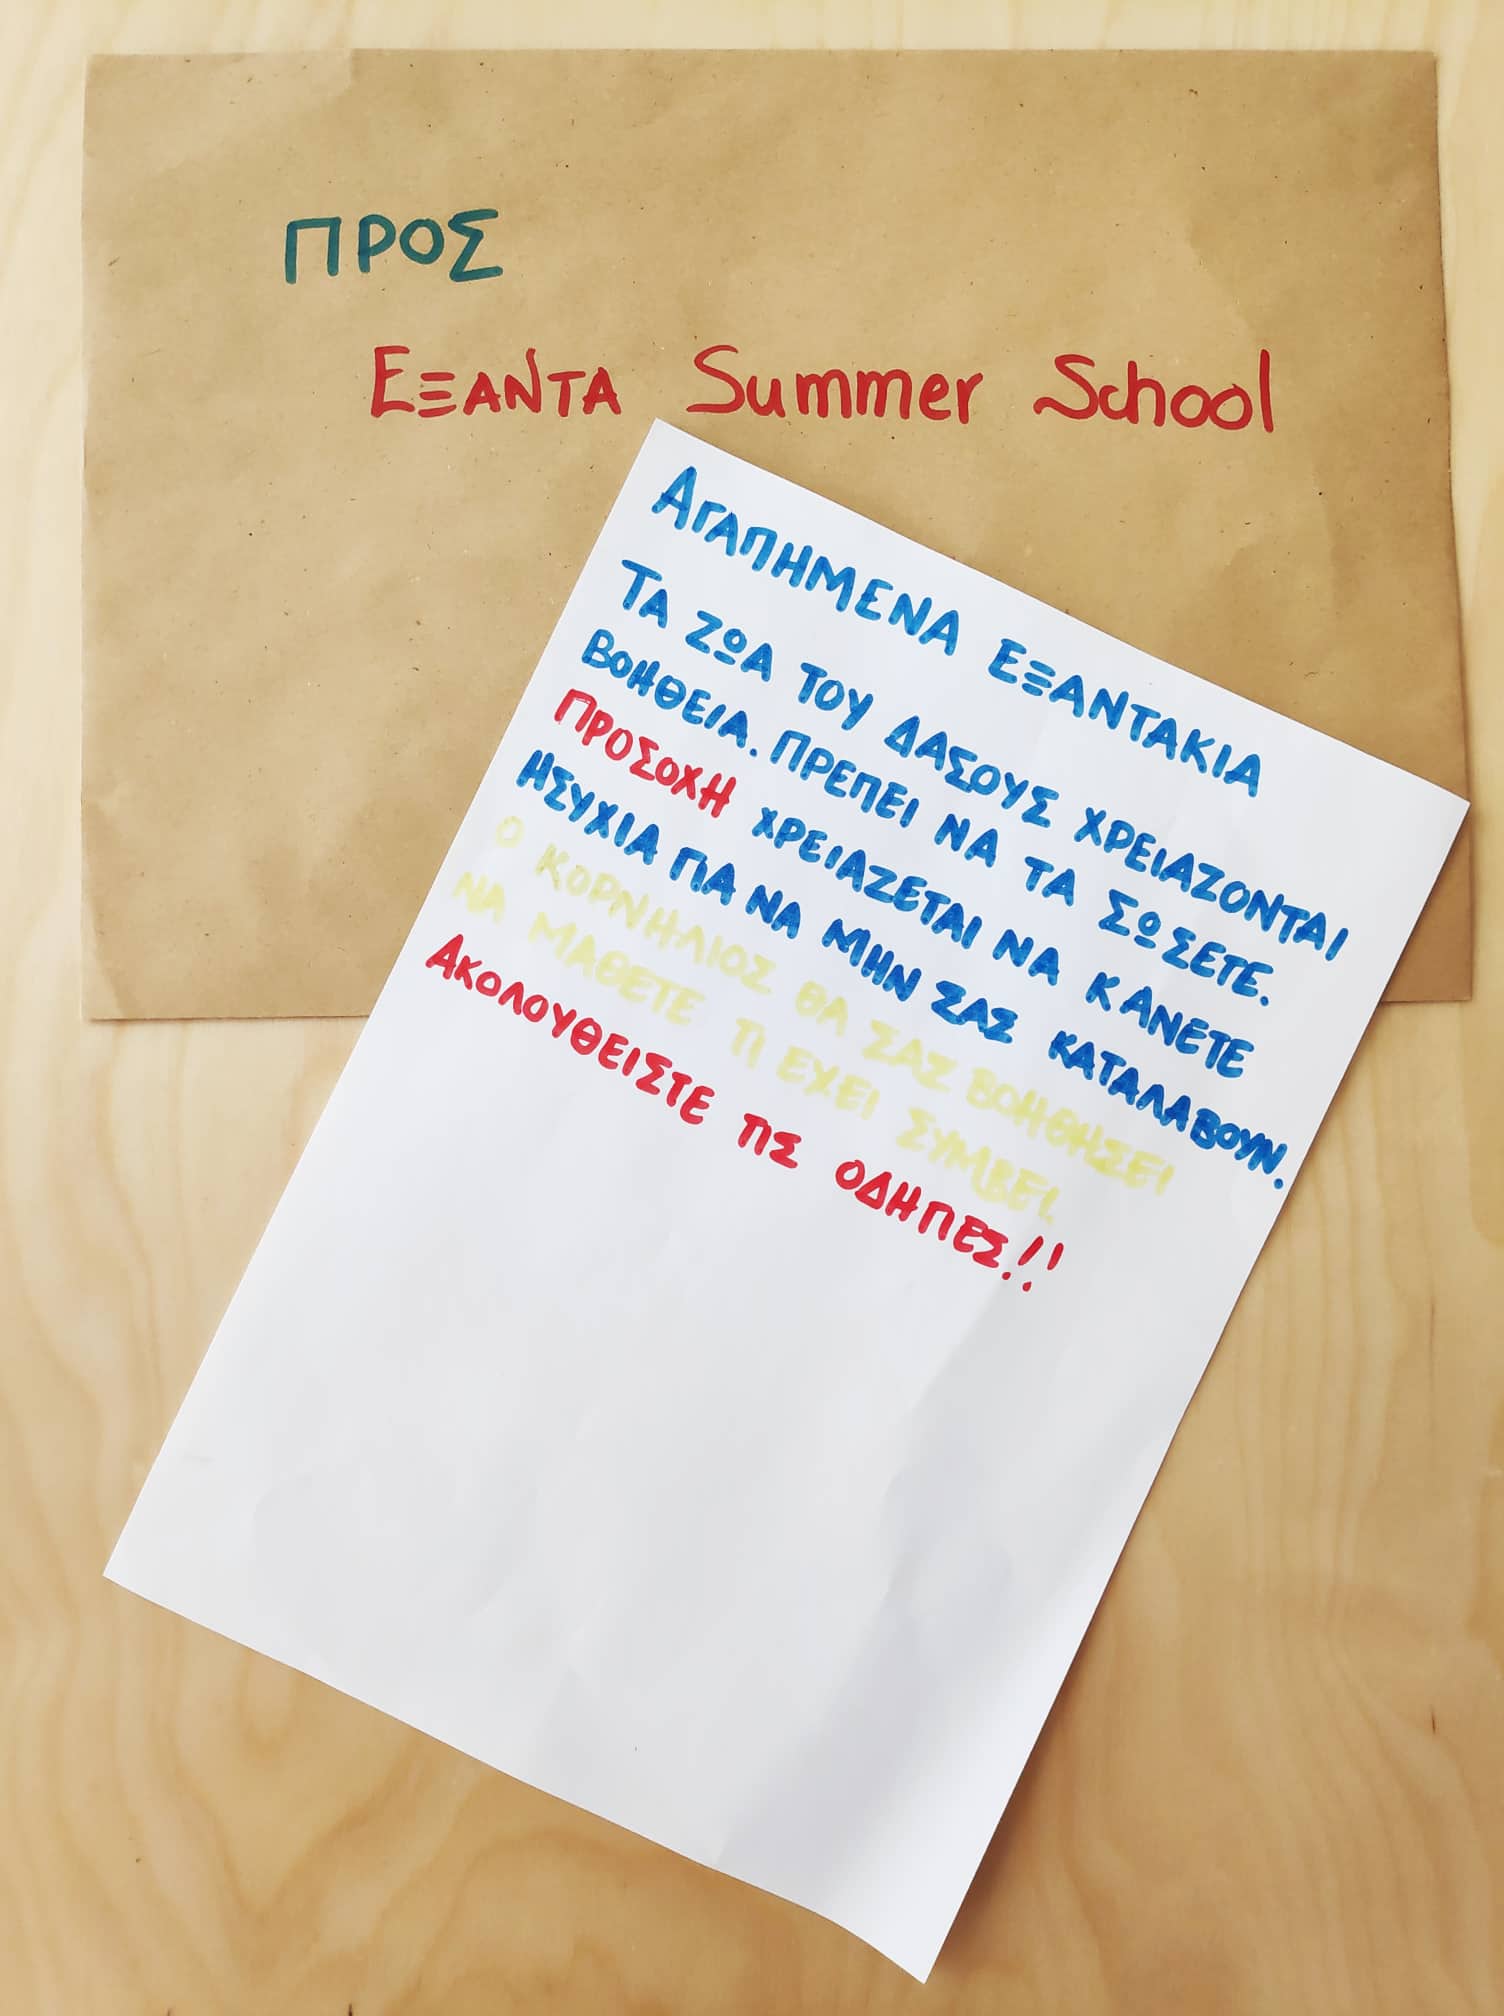 ΠΡΟΣ
ΕΞΑΝΤΑ Summer School
ΑΓΑΠΗΜΕΝΑ ΕΞΑΝΤΑΚΙΑ
ΤΑ ΖΩΑ ΤΟΥ ΔΑΣΟΥΣ ΧΡΕΙΑΖΟΝΤΑΙ
ΒΟΗΘΕΙΑ. ΠΡΕΠΕΙ ΝΑ ΤΑ ΣΩΣΕΤΕ.
ΠΡΟΣΟΧΗ ΧΡΕΙΑΖΕΤΑΙ ΝΑ ΚΑΝΕΤΕ
ΗΣΥΧΙΑ ΓΙΑ ΝΑ ΜΗΝ ΣΑΣ ΚΑΤΑΛΑΒΟΥΝ.
Ο ΚΟΡΝΗΛΙΟΣ ΘΑ ΣΑΣ ΒΟΗΘΗΣΕΙ
ΝΑ ΜΑΘΕΤΕ ΤΙ ΕΧΕΙ ΣΥΜΒΕΙ.
ΑΚΟΛΟΥΘΕΙΣΤΕ ΤΙΣ ΟΔΗΓΙΕΣ!!